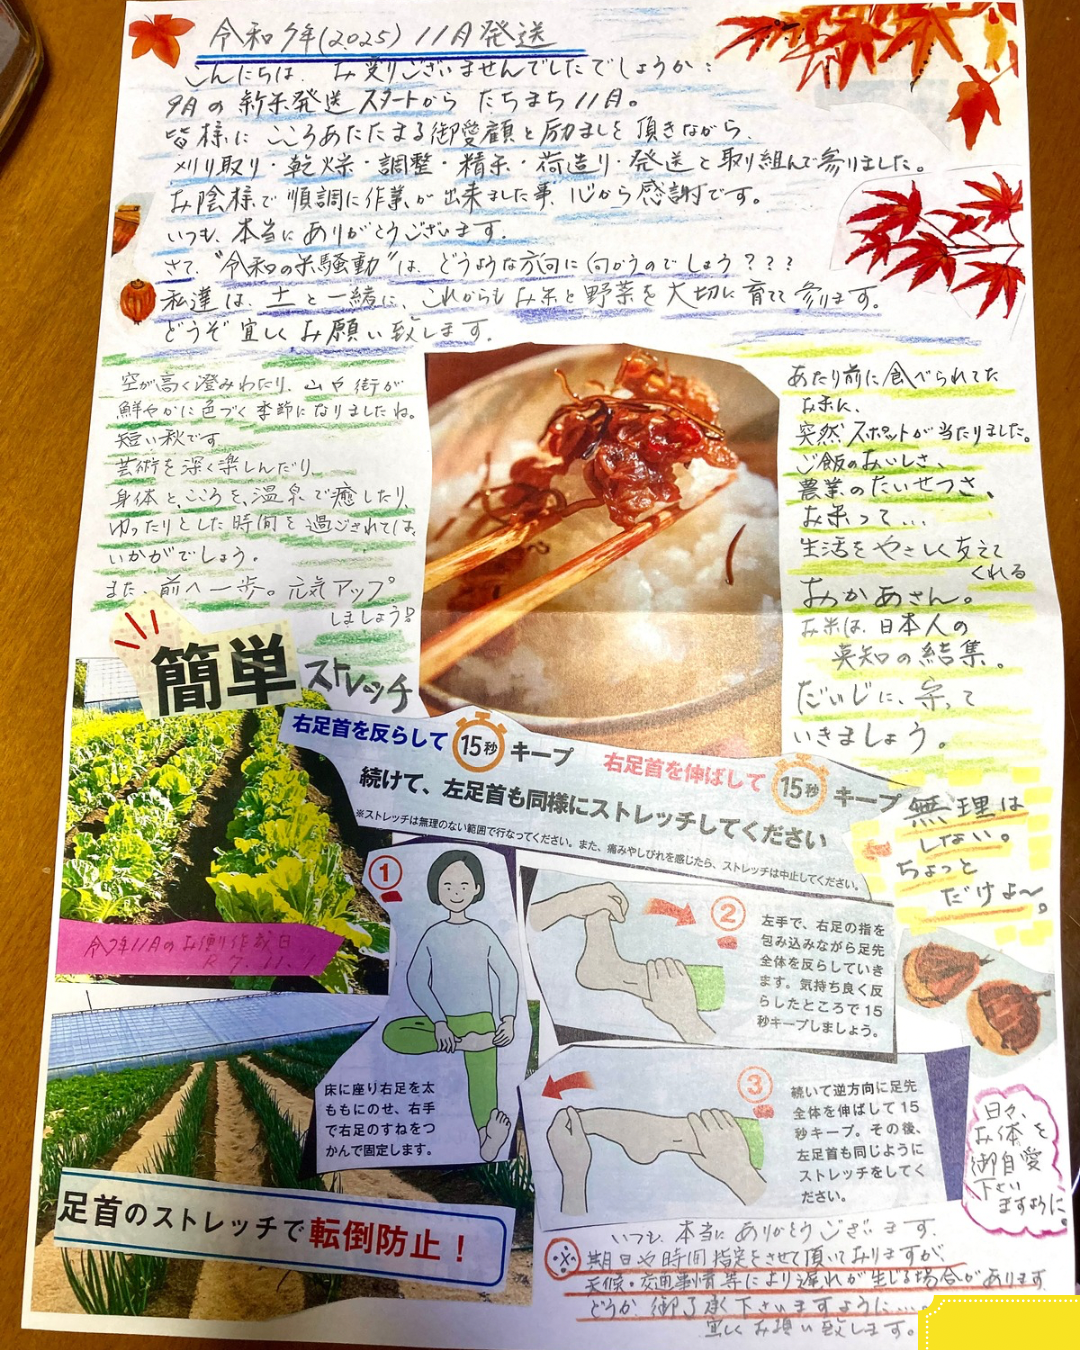 令和7年(2025) 11月発送
こんにちは、お変りございませんでしたでしょうか:
9月の新米発送スタートから たちまち11月。
皆様に こころあたたまる御愛顧と励ましを頂きながら、
刈り取り・乾燥・調整・精米・荷造り・発送と取り組んで参りました。
お陰様で順調に作業が出来ました事、心から感謝です。
いつも、本当にありがとうございます。
さて、"令和の米騒動"は、どうような方向に向かうのでしょう???
私達は、土と一緒に、これからもお米と野菜を大切に育てて参ります。
どうぞ宜しくお願い致します。
空が高く澄みわたり、山や街が
鮮やかに色づく季節になりましたね。
短い秋です
芸術を深く楽しんだり、
身体と、こころを、温泉で癒したり、
ゆったりとした時間を過ごされては、
いかがでしょう。
また、前へ一歩。元気アップ
しましょう!
あたり前に食べられてた
お米に、
突然スポットが当たりました。
ご飯のおいしさ、
農業のたいせつさ、
お米って...
生活をやさしく支えて
くれる
おかあさん。
お米は、日本人の
英知の結集。
だいじに、守って
いきましょう。
簡単ストレッチ
右足首を反らして 15秒 キープ 右足首を伸ばして 15秒 キープ
続けて、左足首も同様にストレッチしてください
※ストレッチは無理のない範囲で行なってください。また、痛みやしびれを感じたら、ストレッチは中止してください。
無理は
しない。
ちょっと
だけよ〜。
令7年11月のお便り作成日
R7.11.1
①
床に座り右足を太
ももにのせ、右手
で右足のすねをつ
かんで固定します。
②
左手で、右足の指を
包み込みながら足先
全体を反らしていき
ます。気持ち良く反
らしたところで15
秒キープしましょう。
③
続いて逆方向に足先
全体を伸ばして15
秒キープ。その後、
左足首も同じように
ストレッチをしてく
ださい。
足首のストレッチで転倒防止!
日々、
お体を
御自愛
下さい
ますように。
いつも、本当にありがとうございます。
※期日や時間指定をさせて頂いておりますが、
天候・交通事情等により遅れが生じる場合があります
どうか、御了承下さいますように....。
宜しくお願い致します。